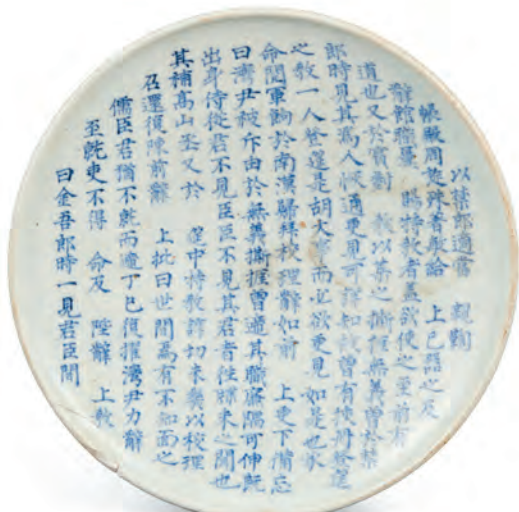 以禁郎適當 親鞫
帳殿周旋殊者敏給 上已器之及
辭館職最 賜特敎者蓋欲使之筵前有
道也又於賓對 敎以某之撕捱無義曾於禁
郎時見其爲人恢通更見可諒知故曾有使丹於筵
之敎一人登還是胡大事而必欲更見 如是也永
命閱軍餉於南漢歸拜校理辭如前 上更下備忘
曰灣尹被斥由於無義撕捱曾遞其職廉隅可伸旣
出身侍從君不見臣臣不見其君者往牒未之聞也
其補高山丞又於 筵中特敎諄切未幾以校理
召還復陳前辭 上批曰世間焉有不知面之
儒臣君 不 而遞丁巳復擢灣尹力辭
至 更不得 命及 陛辭 上敎
曰金吾郎時一見君臣間